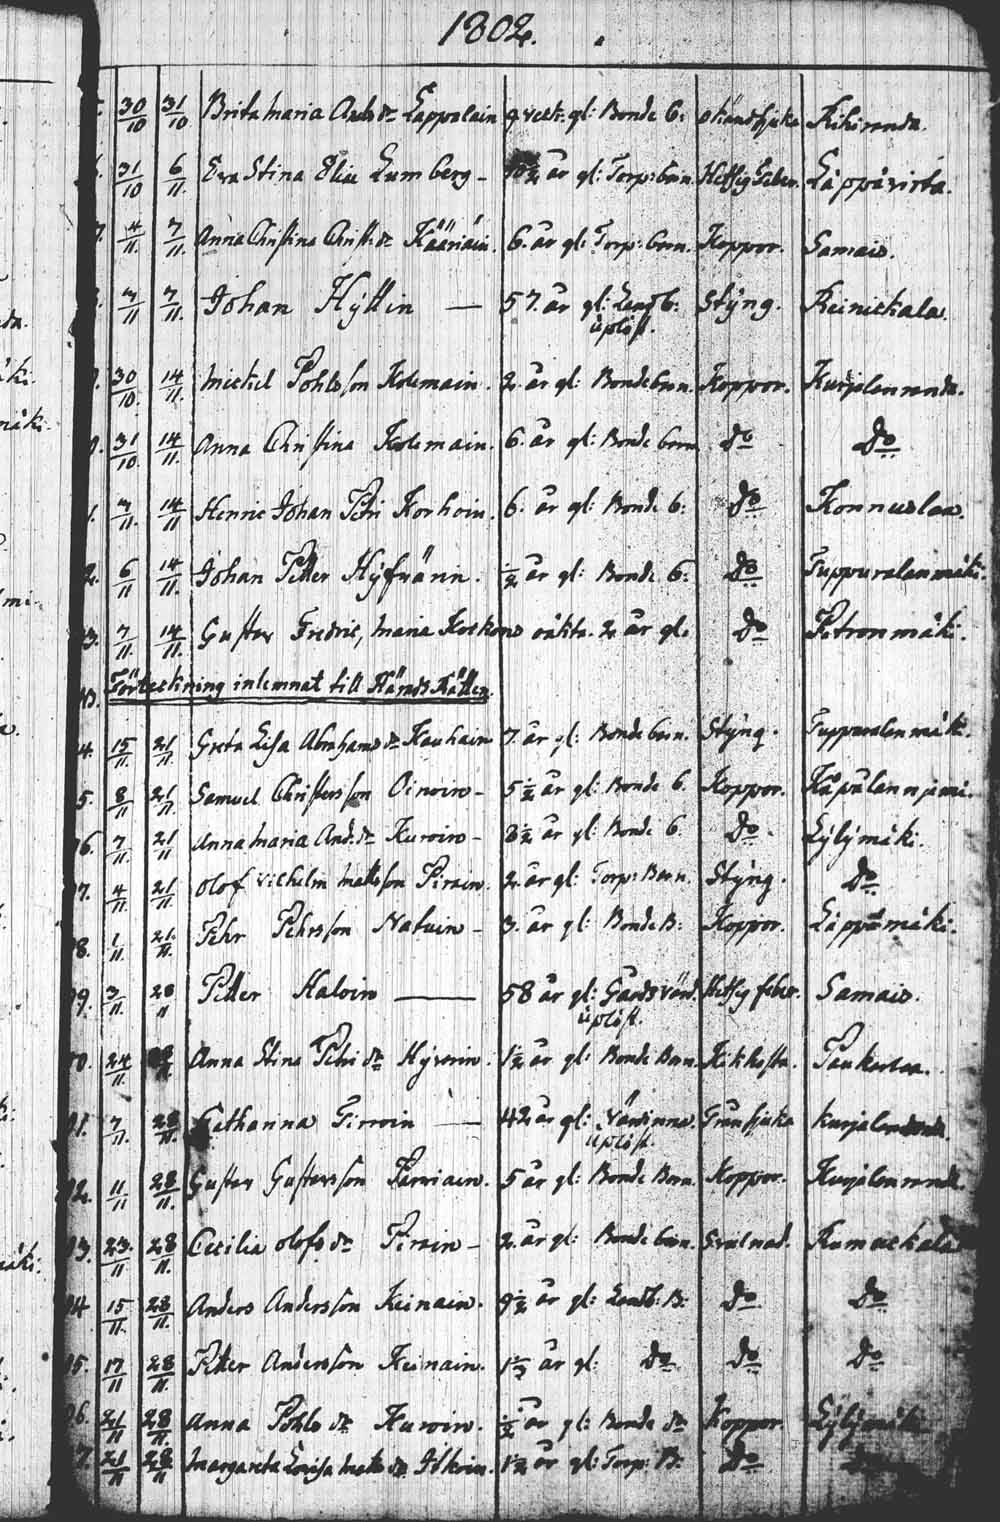 1802.
30/10 31/10 Brita Maria And:dr Lappalain 9 veck: gl: Bonde b: okändsjuka Kihiranda.
31/10 6/11 Eva Stina Elin Lumberg - 10½ år gl: Torp: barn. Hetsig Feber. Läppävirta.
4/11 7/11 Anna Christina Christ:dr Kääriäin. 6. år gl: Torp: barn. Koppor. Samais.
7/11 7/11 Johan Hyttin — 57. år gl: Landb: Stÿng. Reinickala.
uplöst.
30/10 14/11 Mickel Pohlsson Kolemain. 2. år gl: Bondebarn. Koppor. Kurjalanranda.
31/10 14/11 Anna Christina Kolemain. 6. år gl: Bonde barn Do Do
7/11 14/11 Henric Johan Petri Korhoin. 6. år gl: Bonde b: Do Konnuslax.
2. 6/11 14/11 Johan Petter Hÿfvärin. ½ år gl: Bonde b: Do Tuppuralanmäki.
3. 7/11 14/11 Gustav Fredric, Maria Koskons oäkta. 2. år gl. Do Petronmäki.
Förteckning inlemnat till Härads Rätten.
4. 15/11 21/11 Greta Lisa Abrahams dr Kauhain 7. år gl: Bonde barn. Stÿng. Tuppuralanmäki.
5. 8/11 21/11 Samuel Christersson Oinoin - 5½ år gl: Bonde b. Koppor. Kåpälänniemi.
6. 7/11 21/11 Anna Maria And:dr Kuroin - 3½ år gl: Bonde b. Do. Lÿlÿmäki.
7. 4/11 21/11 Olof Vilhelm Matsson Pirain. 2. år gl: Torp: Barn. Stÿng. Do
8. 1/11 21/11 Pehr Pehrsson Natuin - 3. år gl: Bonde B: Koppor. Läppämäki.
9. 3/11 28/11 Petter Haloin — 58 år gl: Gårdsvärd. Hetsig feber. Samais.
uplöst.
0. 24/11 28/11 Anna Stina Petri dr Hÿvärin. 1½ år gl: Bonde Barn. Kikhosta. Paukarlax.
1. 7/11 28/11 Catharina Tirroin — 42 år gl: Värdinna. Tränsjuka Kurjalanranda.
uplöst.
2. 11/11 28/11 Gustav Gustavsson Parviain. 5 år gl: Bonde Barn. Koppor. Kurjalanranda.
3. 23/11 28/11 Cecilia Olofs dr Pirain - 2. år gl: Bonde barn. Svulnad. Kumuckala
4 15/11 28/11 Anders Andersson Keinain. 9½ år gl: Landb: B: Do Do
5. 17/11 28/11 Petter Andersson Keinain. 1½ år gl: Do Do Do
6. 21/11 28/11 Anna Pohls dr Kuroin. ½ år gl: Bonde dr Koppor. Lÿlÿmäki
7. 21/11 28/11 Margareta Lovisa Mats dr Itkoin. 1½ år gl: Torp: B: Do Do